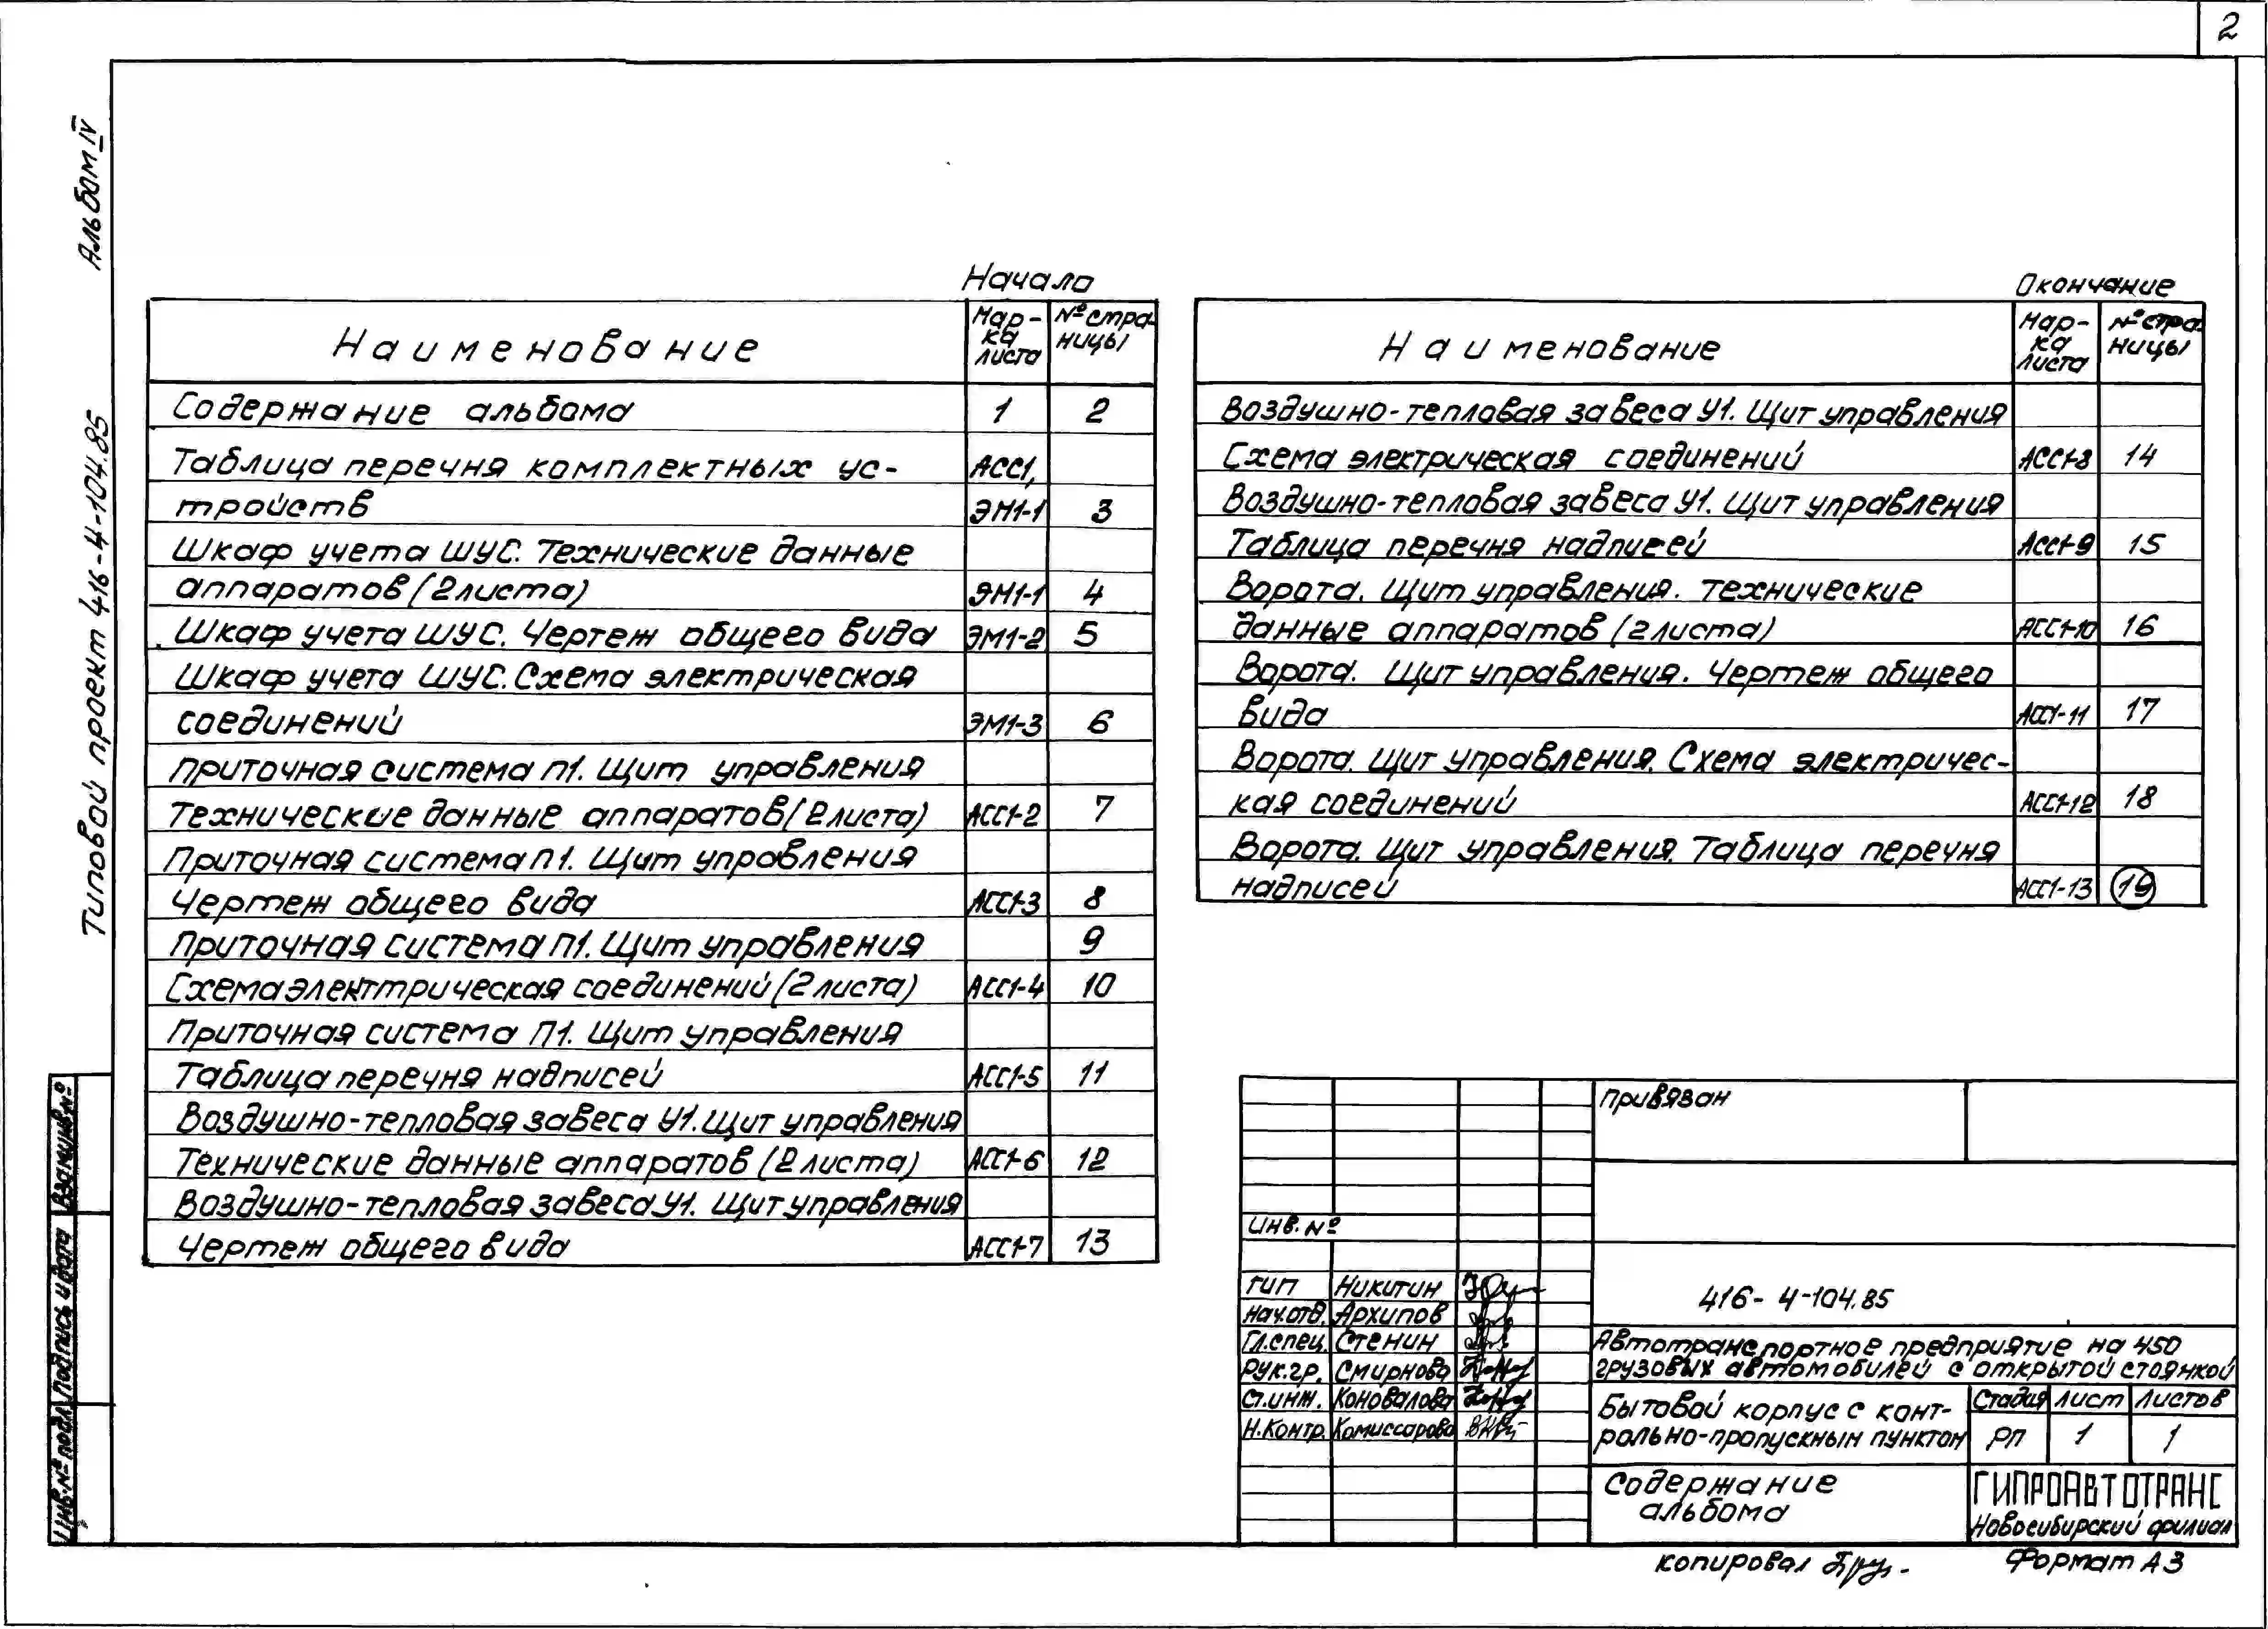 2
Альбом IV
Типовой проект 416-4-104.85
Начало
Наименование
Мар-
ка
листа
№ стра-
ницы
Содержание альбома 1 2
Таблица перечня комплектных ус- АСС1,
тройств ЭМ1-1 3
Шкаф учета ШУС. Технические данные
аппаратов (2 листа) ЭМ1-1 4
Шкаф учета ШУС. Чертеж общего вида ЭМ1-2 5
Шкаф учета ШУС. Схема электрическая
соединений ЭМ1-3 6
Приточная система П1. Щит управления
Технические данные аппаратов (2 листа) АСС1-2 7
Приточная система П1. Щит управления
Чертеж общего вида АСС1-3 8
Приточная система П1. Щит управления 9
Схема электтрическая соединений (2 листа) АСС1-4 10
Приточная система П1. Щит управления
Таблица перечня надписей АСС1-5 11
Воздушно-тепловая завеса У1. Щит управления
Технические данные аппаратов (2 листа) АСС1-6 12
Воздушно-тепловая завеса У1. Щит управления
Чертеж общего вида АСС1-7 13
Окончание
Наименование
Мар-
ка
листа
№ стра-
ницы
Воздушно-тепловая завеса У1. Щит управления
Схема электрическая соединений АСС1-8 14
Воздушно-тепловая завеса У1. Щит управления
Таблица перечня надписей АСС1-9 15
Ворота. Щит управления. Технические
данные аппаратов (2 листа) АСС1-10 16
Ворота. Щит управления. Чертеж общего
вида АСС1-11 17
Ворота. Щит управления. Схема электричес-
кая соединений АСС1-12 18
Ворота. Щит управления. Таблица перечня
надписей АСС1-13 19
Взам.инв.№
Подпись и дата
Инв.№ подл.
Привязан
Инв. №
ГИП Никитин
Нач.отд. Архипов
Гл.спец. Стенин
Рук.гр. Смирнова
Ст.инж. Коновалова
Н.Контр. Комиссарова
416-4-104.85
Автотранспортное предприятие на 450
грузовых автомобилей с открытой стоянкой
Бытовой корпус с конт-
рольно-пропускным пунктом
Стадия Лист Листов
РП 1 1
Содержание
альбома
ГИПРОАВТОТРАНС
Новосибирский филиал
Копировал
Формат А3